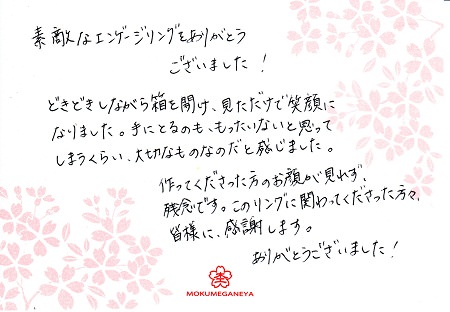 素敵なエンゲージリングをありがとう
ございました！
どきどきしながら箱を開け、見ただけで笑顔に
なりました。手にとるのも、もったいないと思って
しまうくらい、大切なものなのだと感じました。
作ってくださった方のお顔が見れず、
残念です。このリングに関わってくださった方々、
皆様に、感謝します。
ありがとうございました！
MOKUMEGANEYA